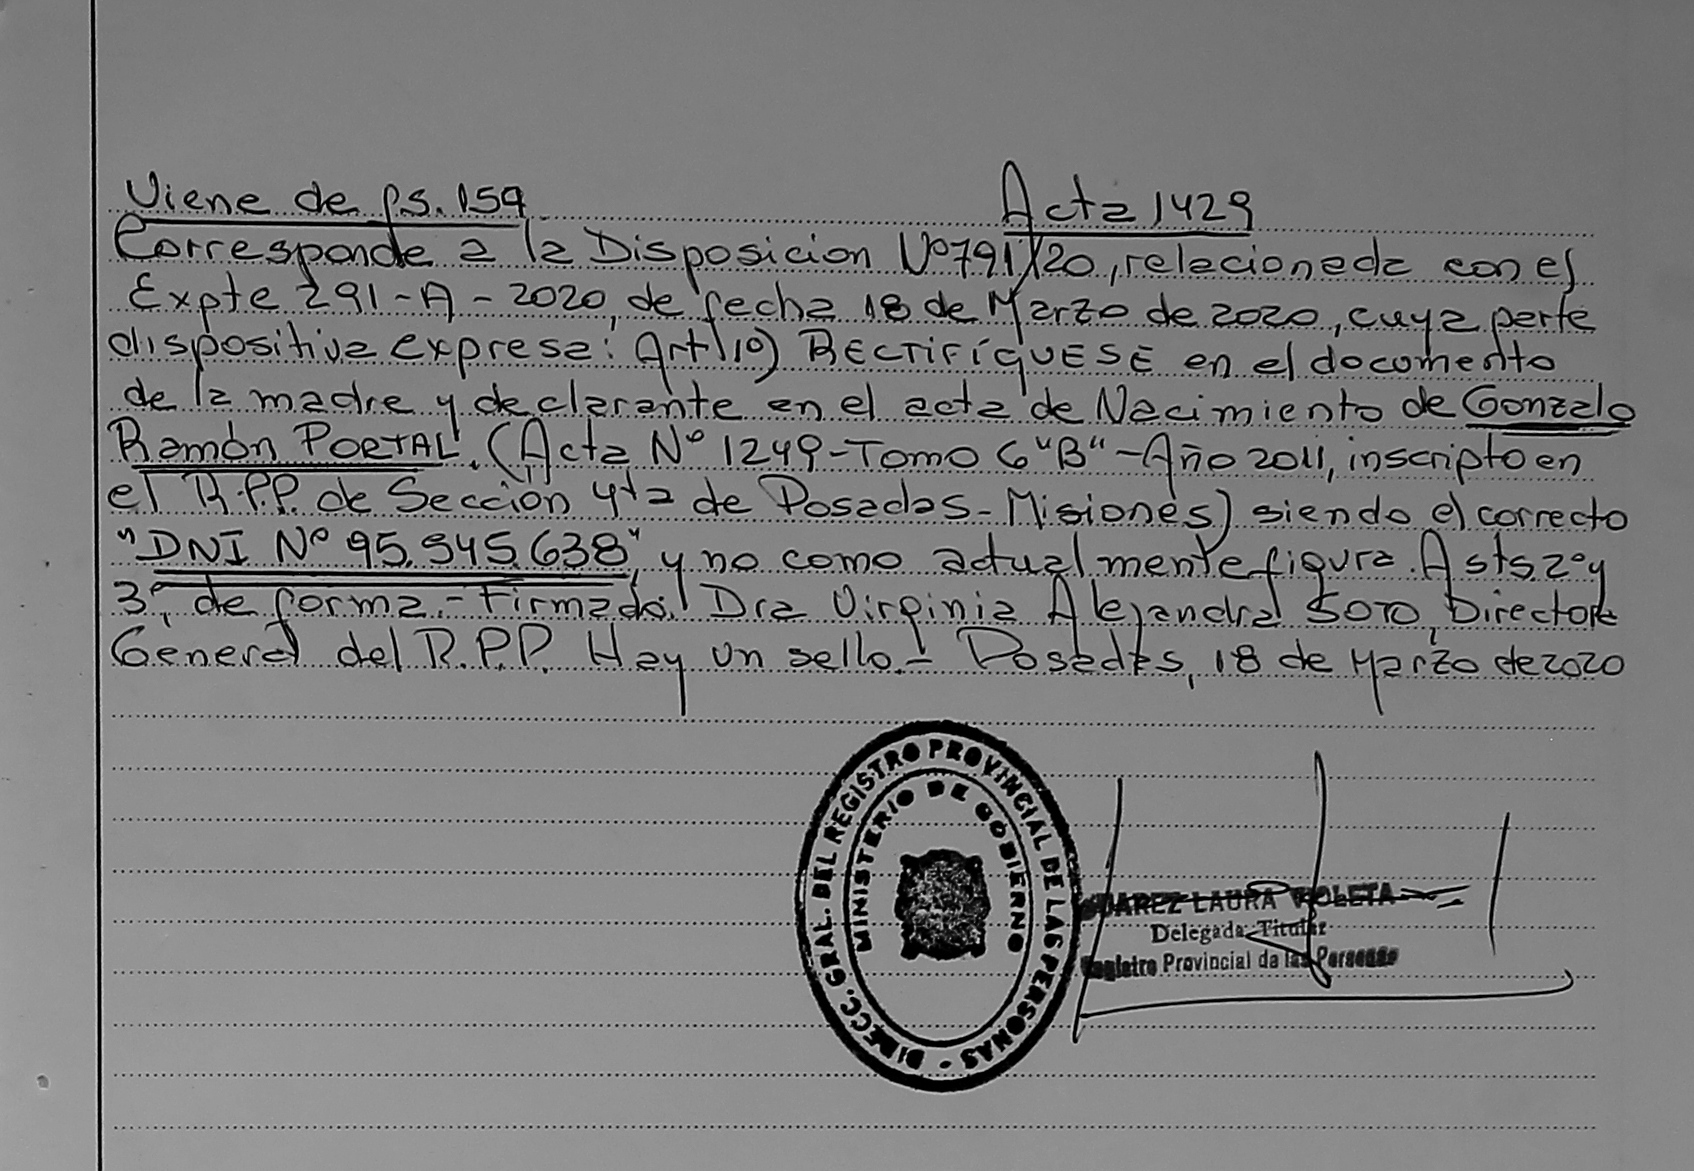 Viene de fs. 159 Acta 1429
Corresponde a la Disposicion Nº 791/20, relacionada con el
Expte 291-A-2020, de fecha 18 de Marzo de 2020, cuya parte
dispositiva expresa: Art 1º) RECTIFÍQUESE en el documento
de la madre y declarante en el acta de Nacimiento de Gonzalo
Ramón PORTAL, (Acta Nº 1249-Tomo 6"B"-Año 2011, inscripto en
el R.P.P. de Sección 4ta de Posadas-Misiones) siendo el correcto
"DNI Nº 95.945.638" y no como actualmente figura. Asts. 2º y
3º, de forma.- Firmado: Dra Virginia Alejandra SOTO, Directora
General del R.P.P. Hay un sello.- Posadas, 18 de Marzo de 2020
DIRECC. GRAL. DEL REGISTRO PROVINCIAL DE LAS PERSONAS -
MINISTERIO DE GOBIERNO
SUAREZ LAURA VIOLETA
Delegada Titular
Registro Provincial de las Personas